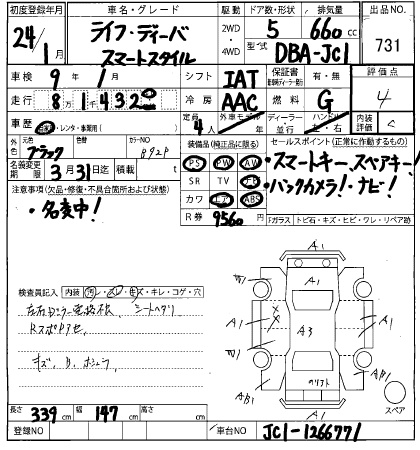 初度登録年月 車名・グレード 駆動 ドア数・形状 排気量 出品NO
24年 1月 ライフ・ディーバ スマートスタイル 2WD・4WD 5 660cc 731
型式 DBA-JC1
車検 9年 1月 シフト IAT 保証書 有・無 評価点
走行 8万1432 冷房 AAC 燃料 G 4
車歴 自家・レンタ・事業用( ) 定員 4人 外車モデル年式 ディーラー・並行 ハンドル 左・右 内装評価 C
外色 元色 ブラック カラーNO B92P 装備品(純正品に限る) セールスポイント(正常に作動するもの)
名義変更期限 3月31日迄 積載 t PS PW AW
・スマートキー、スペアキー!
注意事項(欠品・修復・不具合箇所および状態) SR TV ナビ
・バックカメラ!・ナビ!
・名変中! カワ エア ABS
R券 9560円
Fガラス トビ石・キズ・ヒビ・ワレ・リペア跡
検査員記入 内装 汚・スレ・キズ・キレ・コゲ・穴
シートヘタリ
RスポアセA
A1
A1
A1
A3
A1
AB1
AB1
A1
スペア
長さ 339cm 幅 147cm 高さ cm
登録NO 車台NO JC1-1266771